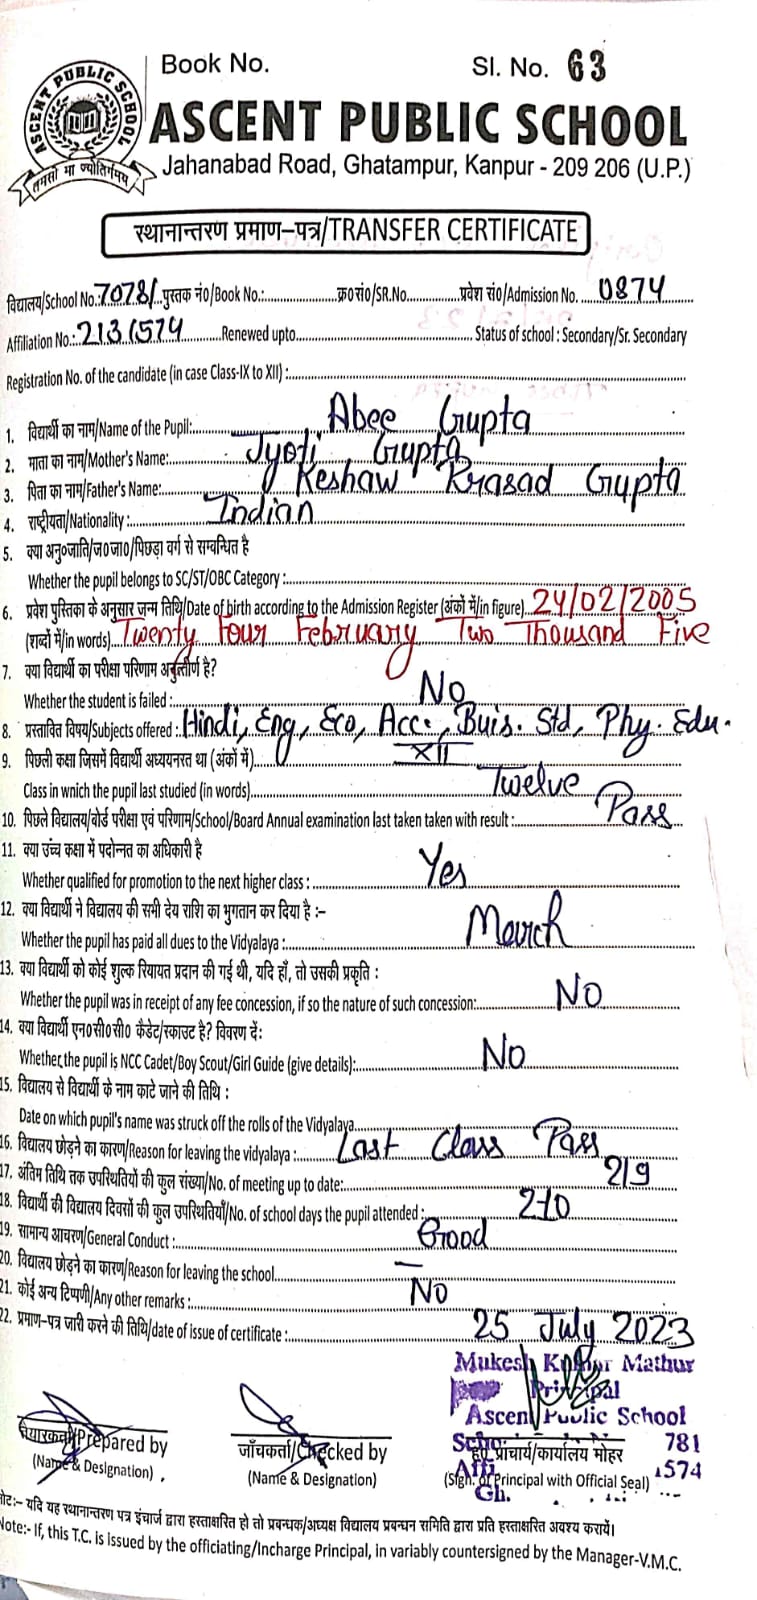 Book No.
Sl. No. 63
ASCENT PUBLIC SCHOOL
तमसो मा ज्योतिर्गमय
ASCENT PUBLIC SCHOOL
Jahanabad Road, Ghatampur, Kanpur - 209 206 (U.P.)
स्थानान्तरण प्रमाण-पत्र/TRANSFER CERTIFICATE
विद्यालय/School No. 7078/ पुस्तक नं०/Book No.: क्र०सं०/SR.No. प्रवेश सं०/Admission No. 0874
Affiliation No.: 2131574 Renewed upto Status of school : Secondary/Sr. Secondary
Registration No. of the candidate (in case Class-IX to XII) :
1. विद्यार्थी का नाम/Name of the Pupil: Abee Gupta
2. माता का नाम/Mother's Name: Jyoti Gupta
3. पिता का नाम/Father's Name: Keshaw Prasad Gupta
4. राष्ट्रीयता/Nationality : Indian
5. क्या अनु०जाति/ज०जा०/पिछड़ा वर्ग से सम्बन्धित है
Whether the pupil belongs to SC/ST/OBC Category :
6. प्रवेश पुस्तिका के अनुसार जन्म तिथि/Date of birth according to the Admission Register (अंकों में/in figure) 24/02/2005
(शब्दों में/in words) Twenty Four February Two Thousand Five
7. क्या विद्यार्थी का परीक्षा परिणाम अनुत्तीर्ण है?
Whether the student is failed : No
8. प्रस्तावित विषय/Subjects offered : Hindi, Eng, Eco, Acc., Buis. Std, Phy. Edu.
9. पिछली कक्षा जिसमें विद्यार्थी अध्ययनरत था (अंकों में) XII
Class in which the pupil last studied (in words) Twelve
10. पिछले विद्यालय/बोर्ड परीक्षा एवं परिणाम/School/Board Annual examination last taken taken with result : Pass
11. क्या उच्च कक्षा में पदोन्नत का अधिकारी है
Whether qualified for promotion to the next higher class : Yes
12. क्या विद्यार्थी ने विद्यालय की सभी देय राशि का भुगतान कर दिया है :-
Whether the pupil has paid all dues to the Vidyalaya : March
13. क्या विद्यार्थी को कोई शुल्क रियायत प्रदान की गई थी, यदि हाँ, तो उसकी प्रकृति :
Whether the pupil was in receipt of any fee concession, if so the nature of such concession: No
14. क्या विद्यार्थी एन०सी०सी० कैडेट/स्काउट है? विवरण दें:
Whether the pupil is NCC Cadet/Boy Scout/Girl Guide (give details): No
15. विद्यालय से विद्यार्थी के नाम काटे जाने की तिथि :
Date on which pupil's name was struck off the rolls of the Vidyalaya
16. विद्यालय छोड़ने का कारण/Reason for leaving the vidyalaya : Last Class Pass
17. अंतिम तिथि तक उपस्थितियों की कुल संख्या/No. of meeting up to date: 219
18. विद्यार्थी की विद्यालय दिवसों की कुल उपस्थितियाँ/No. of school days the pupil attended : 210
19. सामान्य आचरण/General Conduct : Good
20. विद्यालय छोड़ने का कारण/Reason for leaving the school —
21. कोई अन्य टिप्पणी/Any other remarks : No
22. प्रमाण-पत्र जारी करने की तिथि/date of issue of certificate : 25 July 2023
Mukesh Kumar Mathur
Principal
Ascent Public School
781
1574
तैयारकर्ता/Prepared by
(Name & Designation)
जाँचकर्ता/Checked by
(Name & Designation)
प्राचार्य/कार्यालय मोहर
(Sign. of Principal with Official Seal)
नोट:- यदि यह स्थानान्तरण पत्र इंचार्ज द्वारा हस्ताक्षरित हो तो प्रबन्धक/अध्यक्ष विद्यालय प्रबन्धन समिति द्वारा प्रति हस्ताक्षरित अवश्य करायें।
Note:- If, this T.C. is issued by the officiating/Incharge Principal, in variably countersigned by the Manager-V.M.C.